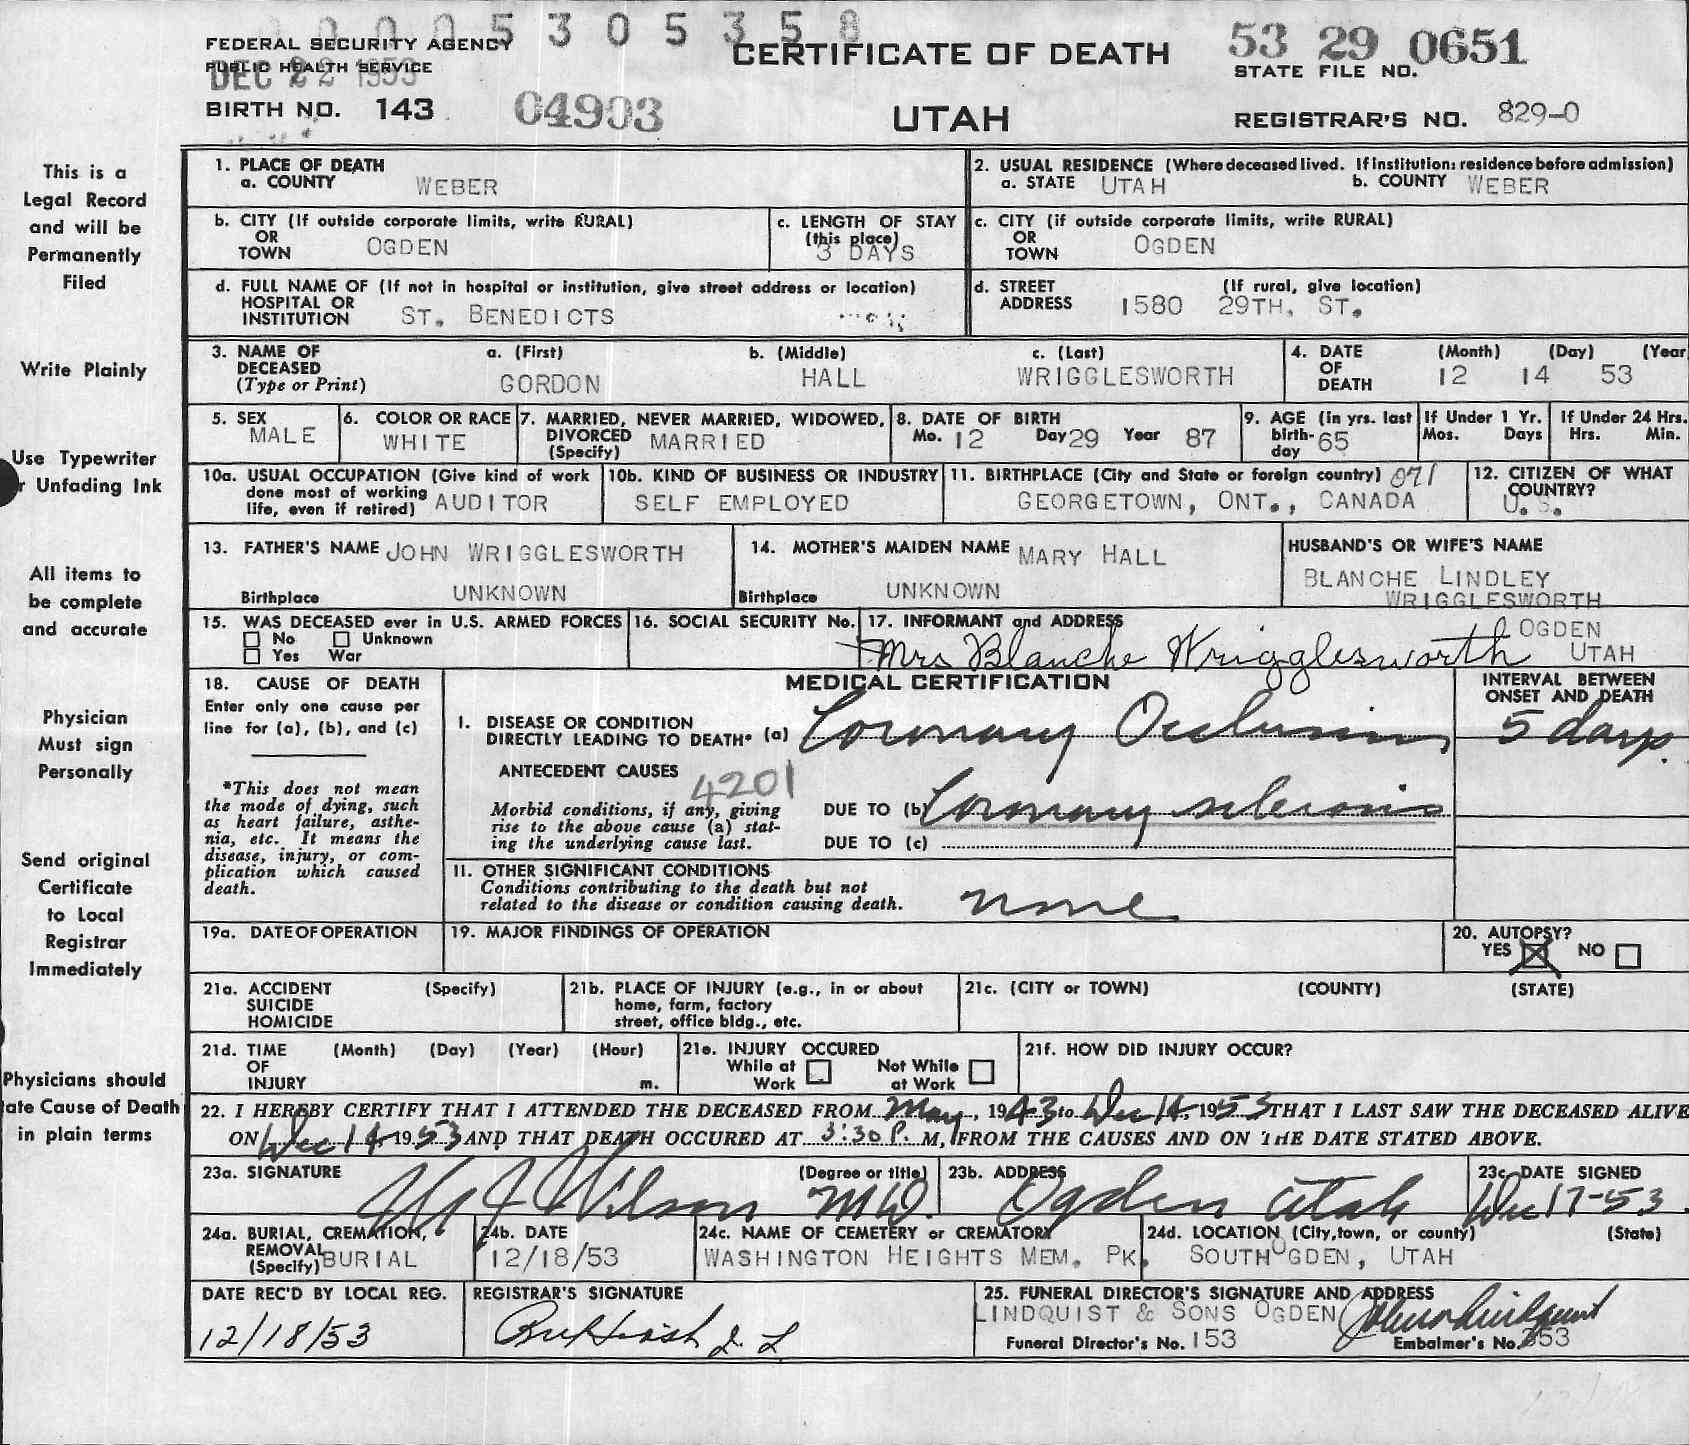 0 0 0 5 3 0 5 3 5 8
FEDERAL SECURITY AGENCY
PUBLIC HEALTH SERVICE
DEC 22 1953
BIRTH NO. 143 04903
CERTIFICATE OF DEATH
UTAH
53 29 0651
STATE FILE NO.
REGISTRAR'S NO. 829-0
This is a
Legal Record
and will be
Permanently
Filed
Write Plainly
Use Typewriter
r Unfading Ink
All items to
be complete
and accurate
Physician
Must sign
Personally
Send original
Certificate
to Local
Registrar
Immediately
Physicians should
ate Cause of Death
in plain terms
1. PLACE OF DEATH
a. COUNTY WEBER
2. USUAL RESIDENCE (Where deceased lived. If institution: residence before admission)
a. STATE UTAH b. COUNTY WEBER
b. CITY (If outside corporate limits, write RURAL)
OR
TOWN OGDEN
c. LENGTH OF STAY
(this place)
3 DAYS
c. CITY (if outside corporate limits, write RURAL)
OR
TOWN OGDEN
d. FULL NAME OF (If not in hospital or institution, give street address or location)
HOSPITAL OR
INSTITUTION ST. BENEDICTS
d. STREET (If rural, give location)
ADDRESS 1580 29TH. ST.
3. NAME OF DECEASED
(Type or Print)
a. (First) b. (Middle) c. (Last)
GORDON HALL WRIGGLESWORTH
4. DATE OF DEATH (Month) (Day) (Year
12 14 53
5. SEX
MALE
6. COLOR OR RACE
WHITE
7. MARRIED, NEVER MARRIED, WIDOWED,
DIVORCED (Specify) MARRIED
8. DATE OF BIRTH
Mo. 12 Day 29 Year 87
9. AGE (in yrs. last
birth-day 65
If Under 1 Yr.
Mos. Days
If Under 24 Hrs.
Hrs. Min.
10a. USUAL OCCUPATION (Give kind of work
done most of working
life, even if retired) AUDITOR
10b. KIND OF BUSINESS OR INDUSTRY
SELF EMPLOYED
11. BIRTHPLACE (City and State or foreign country) 071
GEORGETOWN, ONT., CANADA
12. CITIZEN OF WHAT
COUNTRY?
U.S.
13. FATHER'S NAME JOHN WRIGGLESWORTH
Birthplace UNKNOWN
14. MOTHER'S MAIDEN NAME MARY HALL
Birthplace UNKNOWN
HUSBAND'S OR WIFE'S NAME
BLANCHE LINDLEY
WRIGGLESWORTH
15. WAS DECEASED ever in U.S. ARMED FORCES
No Unknown
Yes War
16. SOCIAL SECURITY No.
17. INFORMANT and ADDRESS
Mrs Blanche Wrigglesworth OGDEN
UTAH
18. CAUSE OF DEATH
Enter only one cause per
line for (a), (b), and (c)
*This does not mean
the mode of dying, such
as heart failure, asthe-
nia, etc. It means the
disease, injury, or com-
plication which caused
death.
MEDICAL CERTIFICATION
INTERVAL BETWEEN
ONSET AND DEATH
I. DISEASE OR CONDITION
DIRECTLY LEADING TO DEATH* (a) Coronary Occlusion 5 days.
ANTECEDENT CAUSES
4201
Morbid conditions, if any, giving
rise to the above cause (a) stat-
ing the underlying cause last.
DUE TO (b) Coronary sclerosis
DUE TO (c)
11. OTHER SIGNIFICANT CONDITIONS
Conditions contributing to the death but not
related to the disease or condition causing death. none
19a. DATE OF OPERATION
19. MAJOR FINDINGS OF OPERATION
20. AUTOPSY?
YES NO
21a. ACCIDENT (Specify)
SUICIDE
HOMICIDE
21b. PLACE OF INJURY (e.g., in or about
home, farm, factory
street, office bldg., etc.
21c. (CITY or TOWN) (COUNTY) (STATE)
21d. TIME (Month) (Day) (Year) (Hour)
OF
INJURY m.
21e. INJURY OCCURED
While at Work Not While at Work
21f. HOW DID INJURY OCCUR?
22. I HEREBY CERTIFY THAT I ATTENDED THE DECEASED FROM May, 1943 to Dec 14, 1953 THAT I LAST SAW THE DECEASED ALIVE
ON Dec 14 1953 AND THAT DEATH OCCURED AT 3:30 P. M, FROM THE CAUSES AND ON THE DATE STATED ABOVE.
23a. SIGNATURE (Degree or title)
Wilson M.D.
23b. ADDRESS
Ogden Utah
23c. DATE SIGNED
Dec 17-53.
24a. BURIAL, CREMATION,
REMOVAL
(Specify) BURIAL
24b. DATE
12/18/53
24c. NAME OF CEMETERY or CREMATORY
WASHINGTON HEIGHTS MEM. PK.
24d. LOCATION (City, town, or county) (State)
SOUTH OGDEN, UTAH
DATE REC'D BY LOCAL REG.
12/18/53
REGISTRAR'S SIGNATURE
25. FUNERAL DIRECTOR'S SIGNATURE AND ADDRESS
LINDQUIST & SONS OGDEN
Funeral Director's No. 153 Embalmer's No. 353